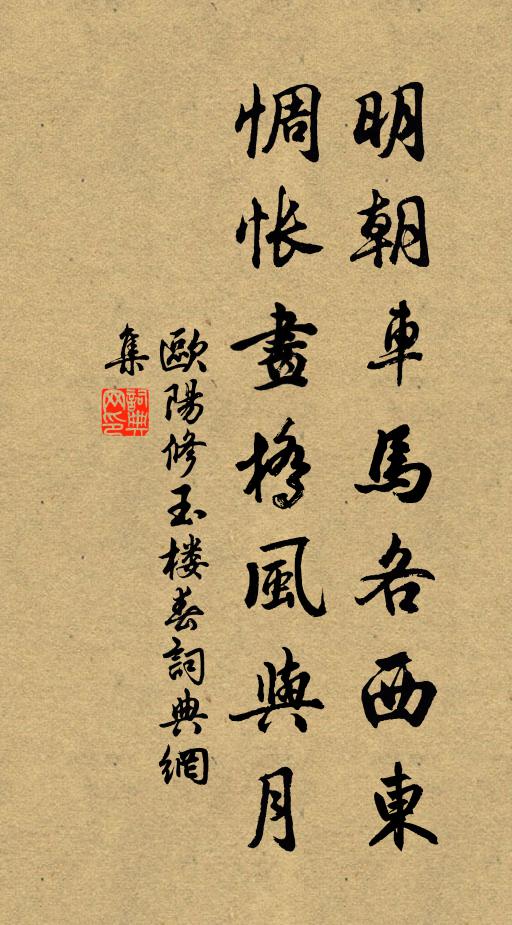 明朝車馬各西東
惆悵畫橋風與月
歐陽修玉楼春詞典網
集
詞典
网印